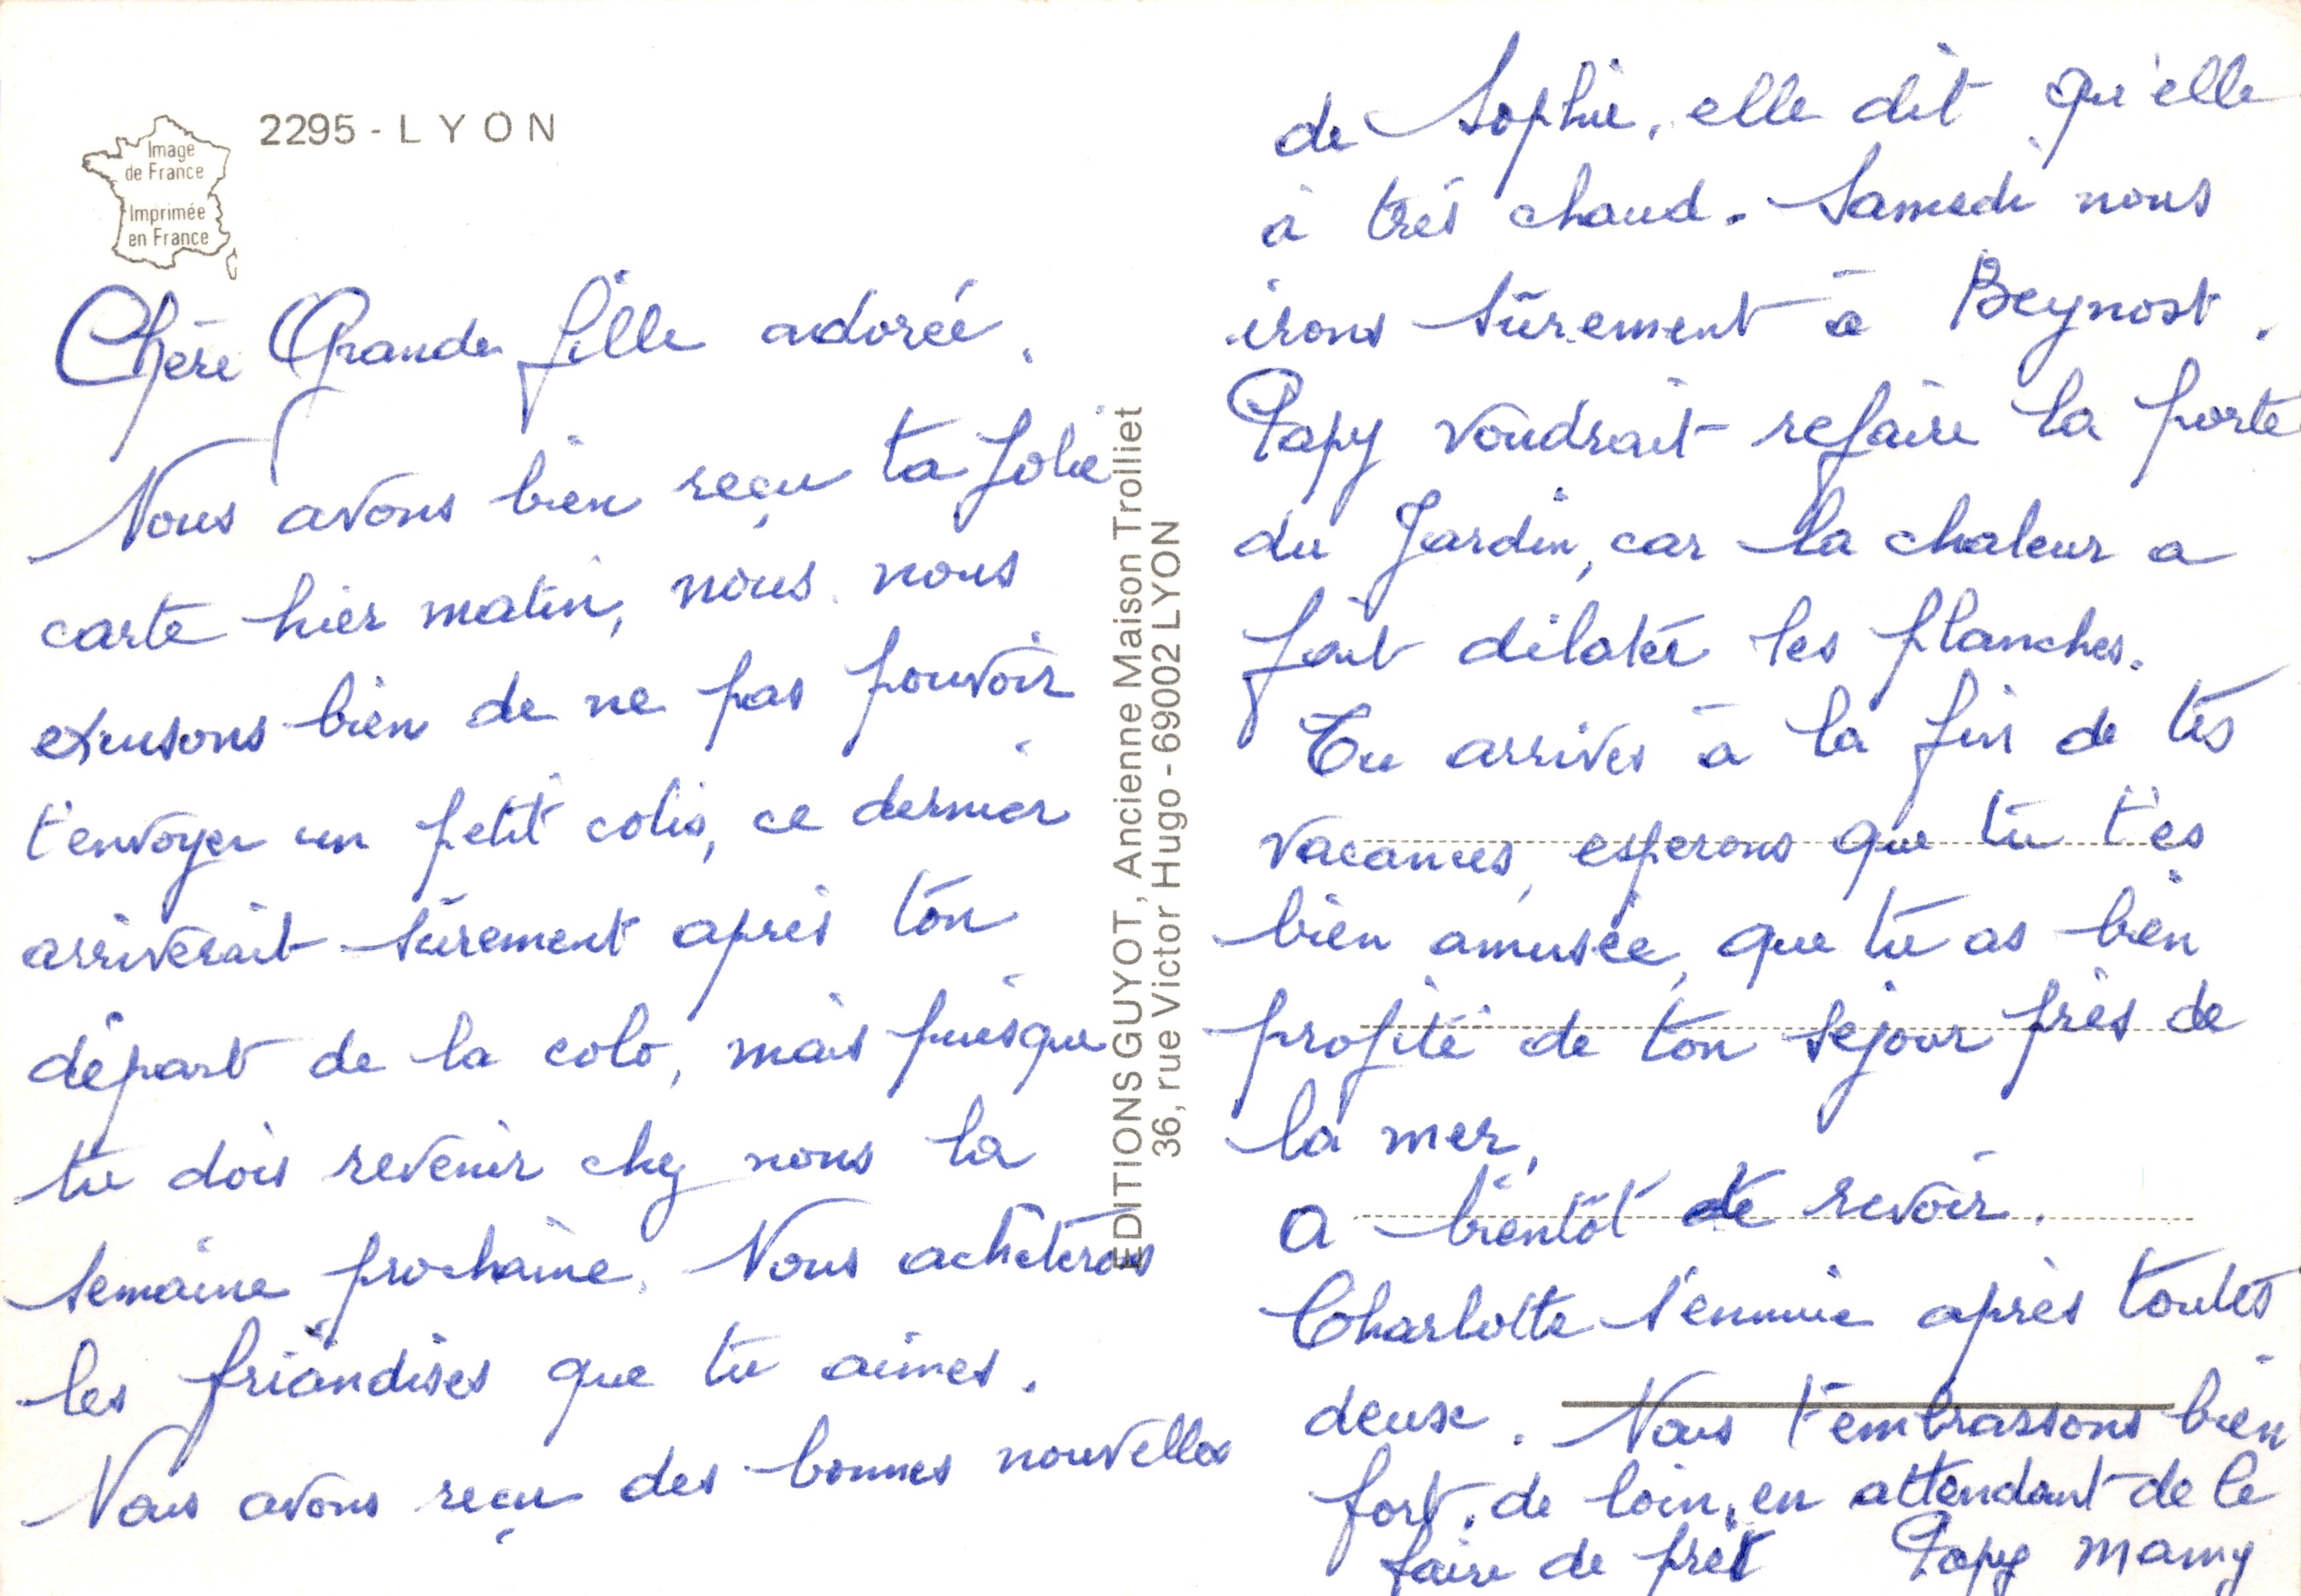 2295 - LYON
Image
de France
Imprimée
en France
Chère Grande fille adorée.
Nous avons bien reçu ta jolie
carte hier matin, nous nous
exusons bien de ne pas pouvoir
t'envoyer un petit colis, ce dernier
arriverait sûrement après ton
départ de la colo, mais puisque
tu dois revenir chez nous la
semaine prochaine. Nous achèterons
les friandises que tu aimes.
Nous avons reçu des bonnes nouvelles
EDITIONS GUYOT, Ancienne Maison Trolliet
36, rue Victor Hugo - 69002 LYON
de Sophie, elle dit qu'elle
à très chaud. Samedi nous
irons sûrement à Beynost.
Papy voudrait refaire la porte
du Jardin, car la chaleur a
fait dilater les planches.
Tu arrives à la fin de tes
vacances, esperons que tu t'es
bien amusée, que tu as bien
profité de ton séjour près de
la mer,
A bientôt de revoir.
Charlotte s'ennuie après toutes
deux. Nous t'embrassons bien
fort, de loin, en attendant de le
faire de prèt Papy mamy